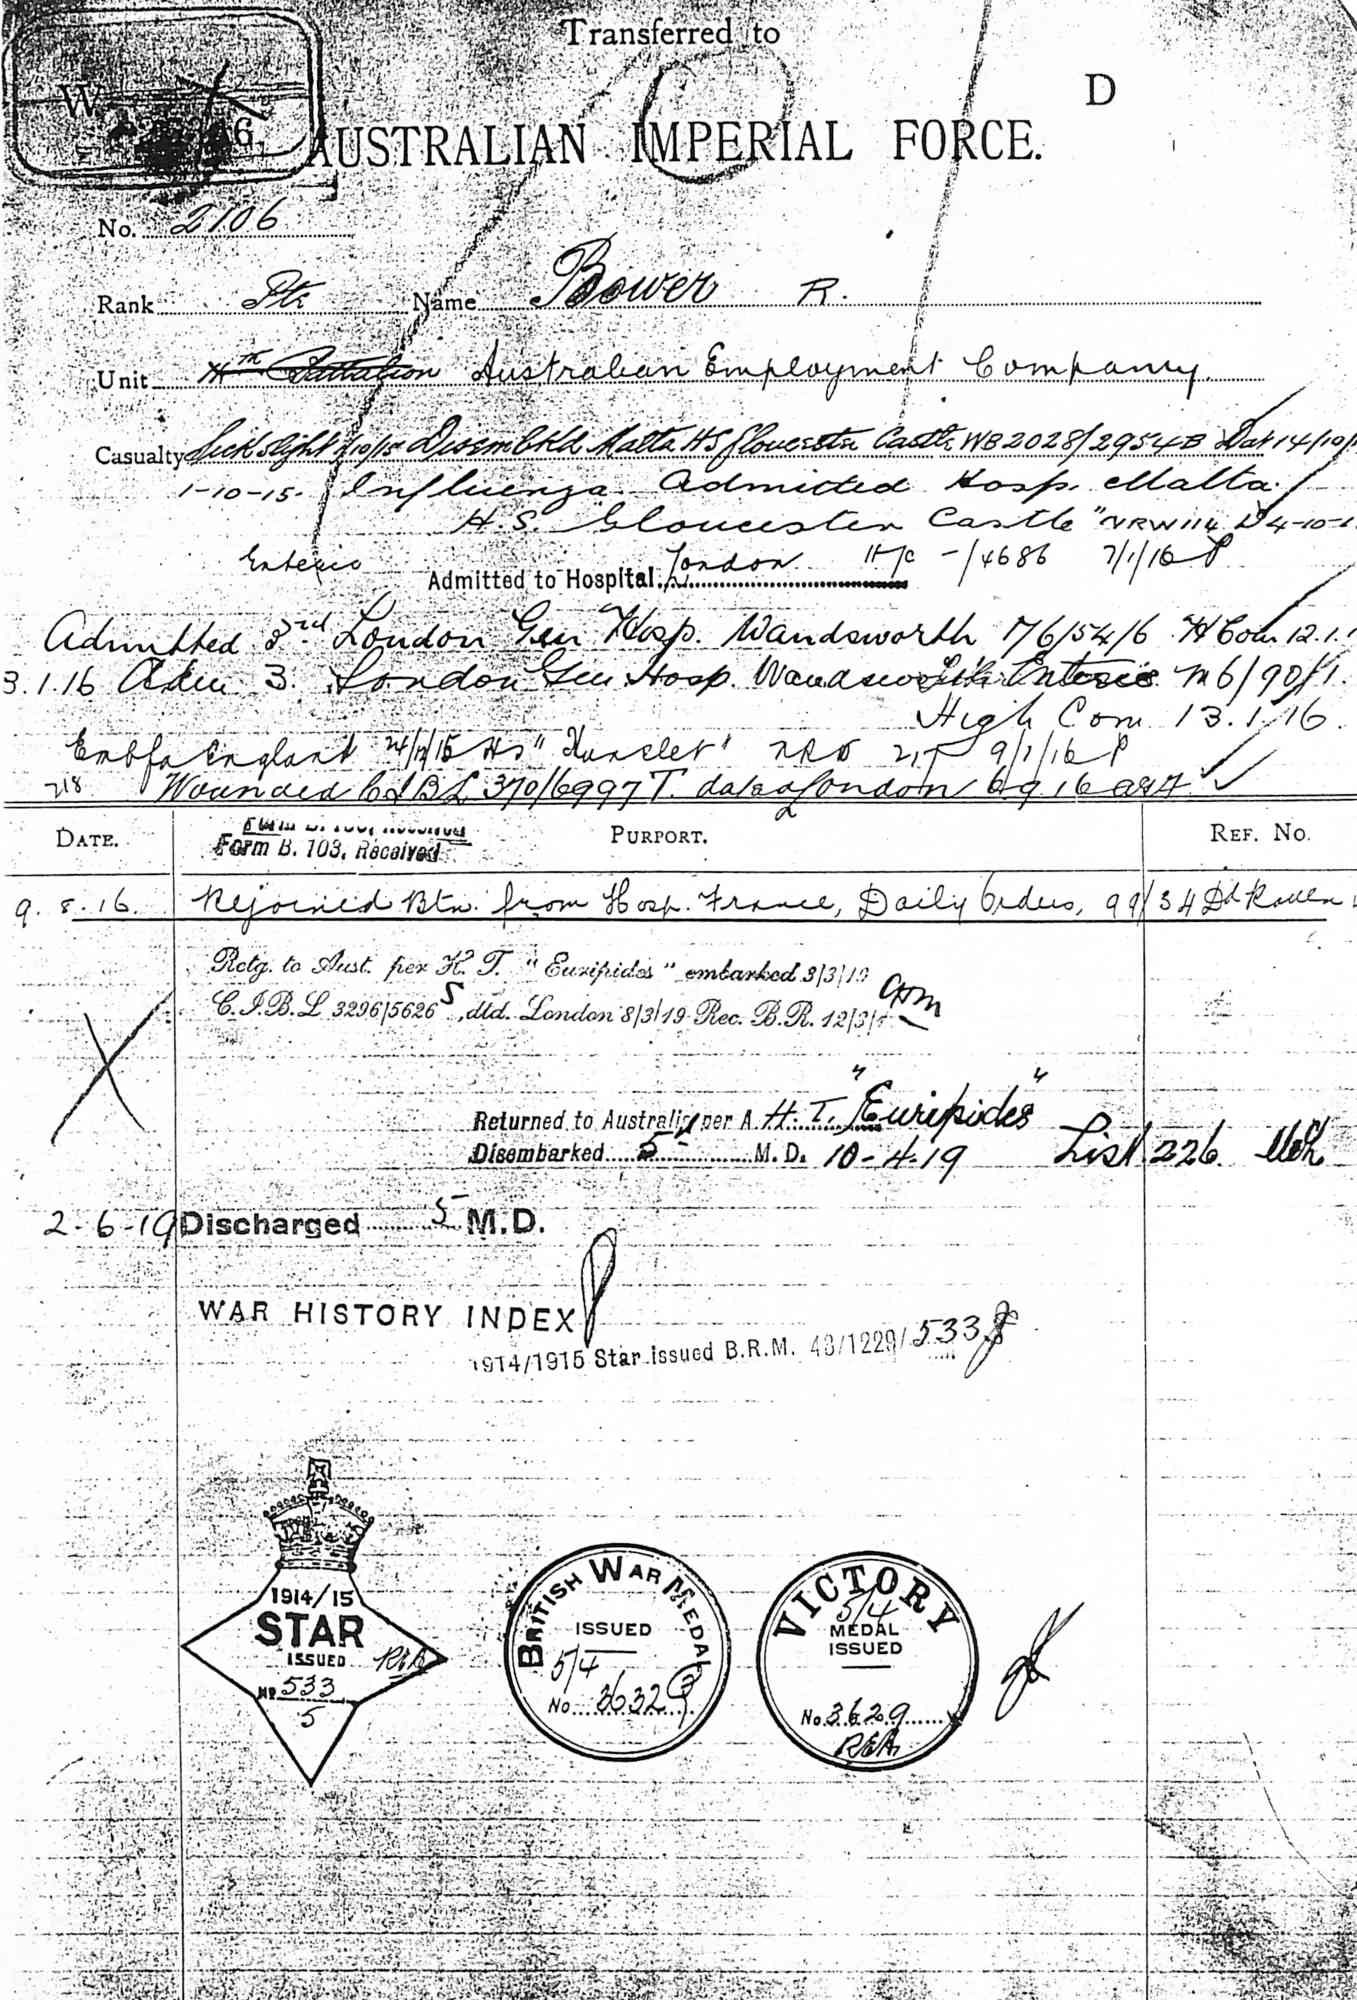 Transferred to
D
AUSTRALIAN IMPERIAL FORCE.
No. 2106
Rank Pte Name Bower R.
Unit Battalion Australian Employment Company
Casualty Sick slight /10/15 Disembkd Malta HS Gloucester Castle WB2028/2954B Dat 14/10/
1-10-15. Influenza Admitted Hosp. Malta.
H.S. Gloucester Castle" NRW114 D 4-10-1
Enteric Admitted to Hospital. London H/c -/4686 7/1/16 P
Admitted 3rd London Gen Hosp. Wandsworth 176/54/6 H Com 12.1.1
3.1.16 Adm 3. London Gen Hosp. Wandsworth Enteric M6/90/1.
High Com 13.1.16.
Emb for England 24/12/15 HS "Hunslet" 9/1/16 P
218 Wounded C.I.B.L 370/6997T. dated London 6 9 16
DATE. PURPORT. REF. No.
Form B. 103, Received
9.8.16. Rejoined Btn. from Hosp. France, Daily Orders, 99/34 Dd Rouen
Rctg. to Aust. per H. T. "Euripides" embarked 3/3/19
C.I.B.L 3296/5626 S, dtd. London 8/3/19 Rec. B.R. 12/3/
Returned to Australia per A. H. T. "Euripides"
Disembarked 5 M. D. 10-4.19 List 226.
2-6-19 Discharged 5 M.D.
WAR HISTORY INDEX
1914/1915 Star issued B.R.M. 43/1229/533
1914/15
STAR
ISSUED
No 533
5
BRITISH WAR MEDAL
ISSUED
5/4
No 3632
VICTORY
5/4
MEDAL
ISSUED
No 3629